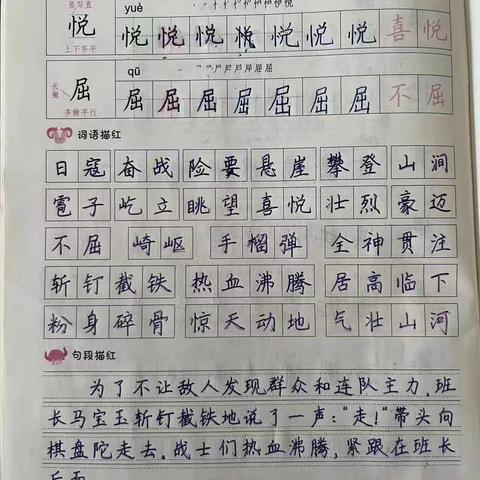 竖写直
yuè
悦 悦 悦 悦 悦 悦 悦 悦 喜 悦
上下齐平
qū
长撇
屈 屈 屈 屈 屈 屈 屈 屈 不 屈
多横平行
词语描红
日寇 奋战 险要 悬崖 攀登 山涧
雹子 屹立 眺望 喜悦 壮烈 豪迈
不屈 崎岖 手榴弹 全神贯注
斩钉截铁 热血沸腾 居高临下
粉身碎骨 惊天动地 气壮山河
句段描红
为了不让敌人发现群众和连队主力,班
长马宝玉斩钉截铁地说了一声:“走!”带头向
棋盘陀走去。战士们热血沸腾,紧跟在班长
后面